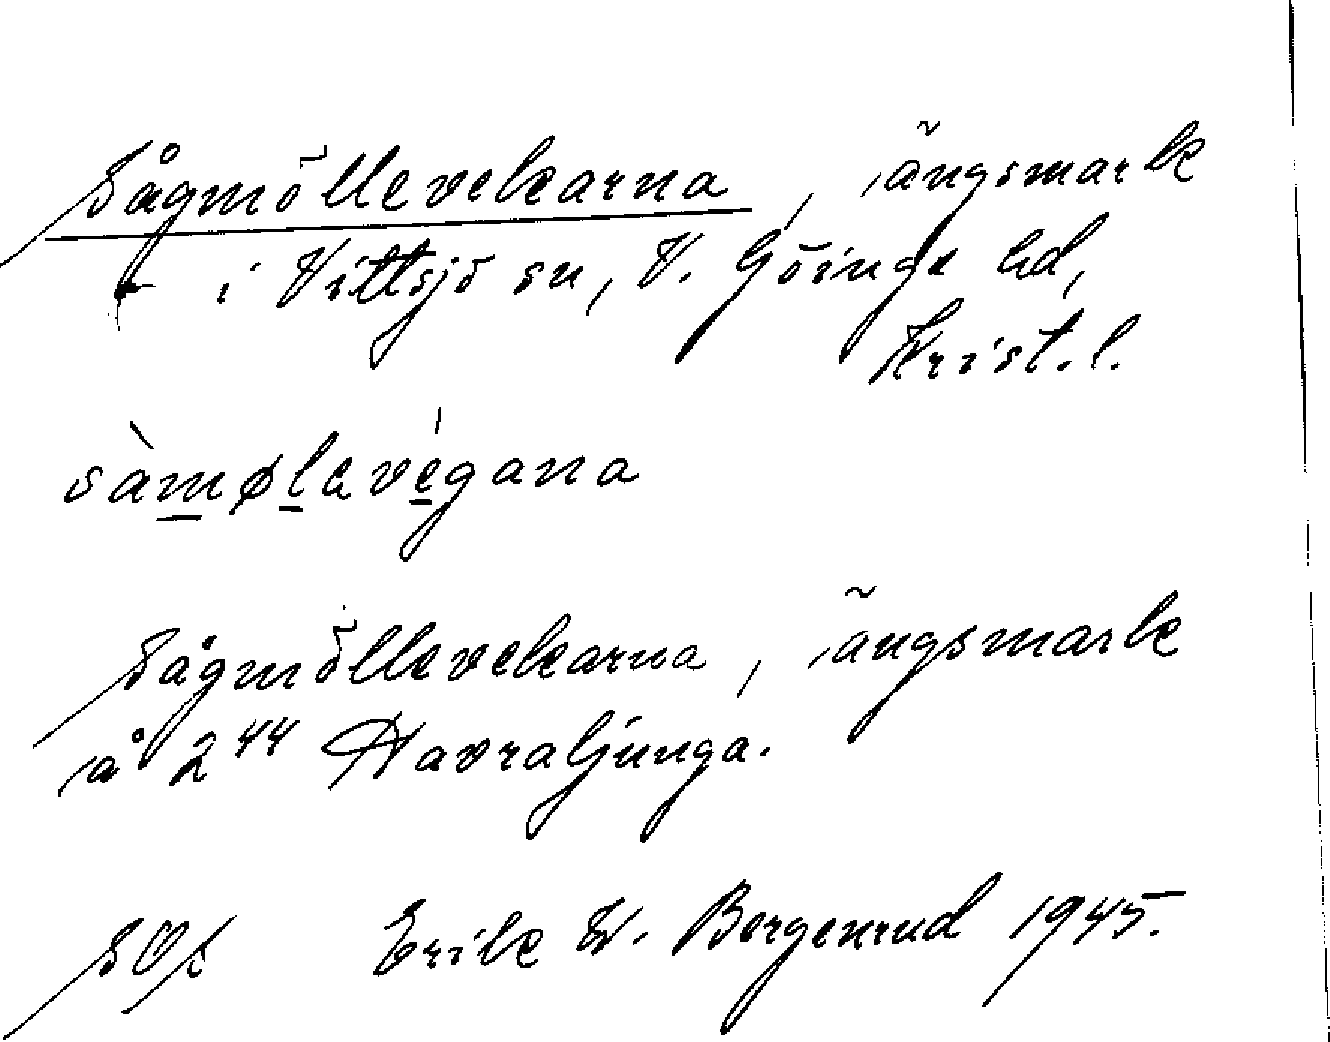 Sågmöllevekarna, ängsmark
i Vittsjö sn, V. Göinge hd,
Krist. l.
sàmølavégana
Sågmöllevekarna, ängsmark
å 2⁴⁴ Havraljunga.
SOS Erik W. Bergenrud 1945.